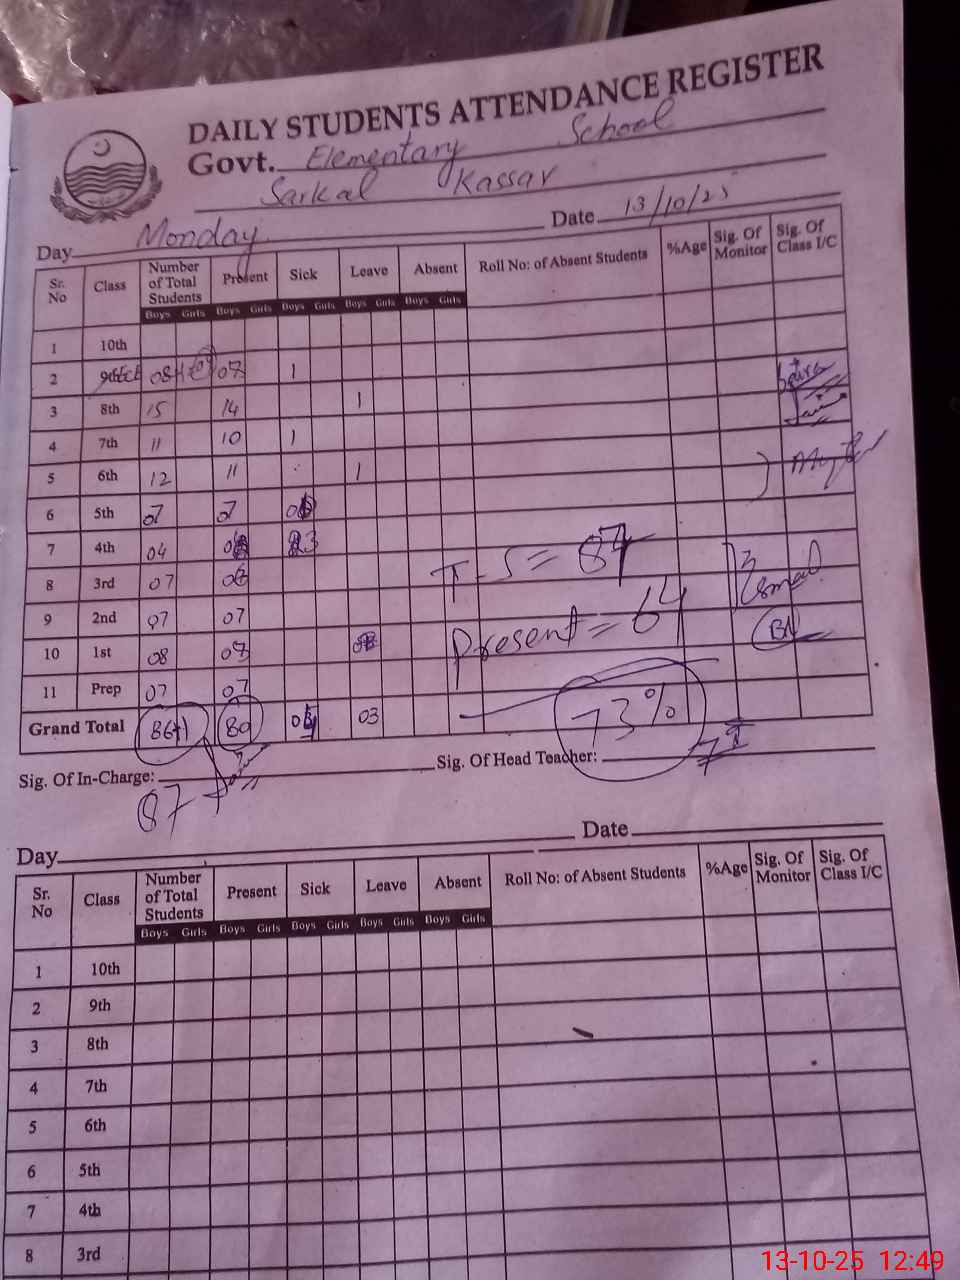 DAILY STUDENTS ATTENDANCE REGISTER
Govt. Elementary School
Sarkal Kassar
Day Monday Date 13/10/25
Sr. No Class Number of Total Students Present Sick Leave Absent Roll No: of Absent Students %Age Sig. Of Monitor Sig. Of Class I/C
Boys Girls Boys Girls Boys Girls Boys Girls Boys Girls
1 10th
2 08+ 07 1
3 8th 15 14 1
4 7th 11 10 1
5 6th 12 11 1
6 5th 07 07
7 4th 04
8 3rd 07
9 2nd 07 07
10 1st 08 07
11 Prep 07 07
T.S = 87
Present = 64
Grand Total 86+1 80 03 73%
Sig. Of In-Charge: Sig. Of Head Teacher:
87
Day Date
Sr. No Class Number of Total Students Present Sick Leave Absent Roll No: of Absent Students %Age Sig. Of Monitor Sig. Of Class I/C
Boys Girls Boys Girls Boys Girls Boys Girls Boys Girls
1 10th
2 9th
3 8th
4 7th
5 6th
6 5th
7 4th
8 3rd
13-10-25 12:49